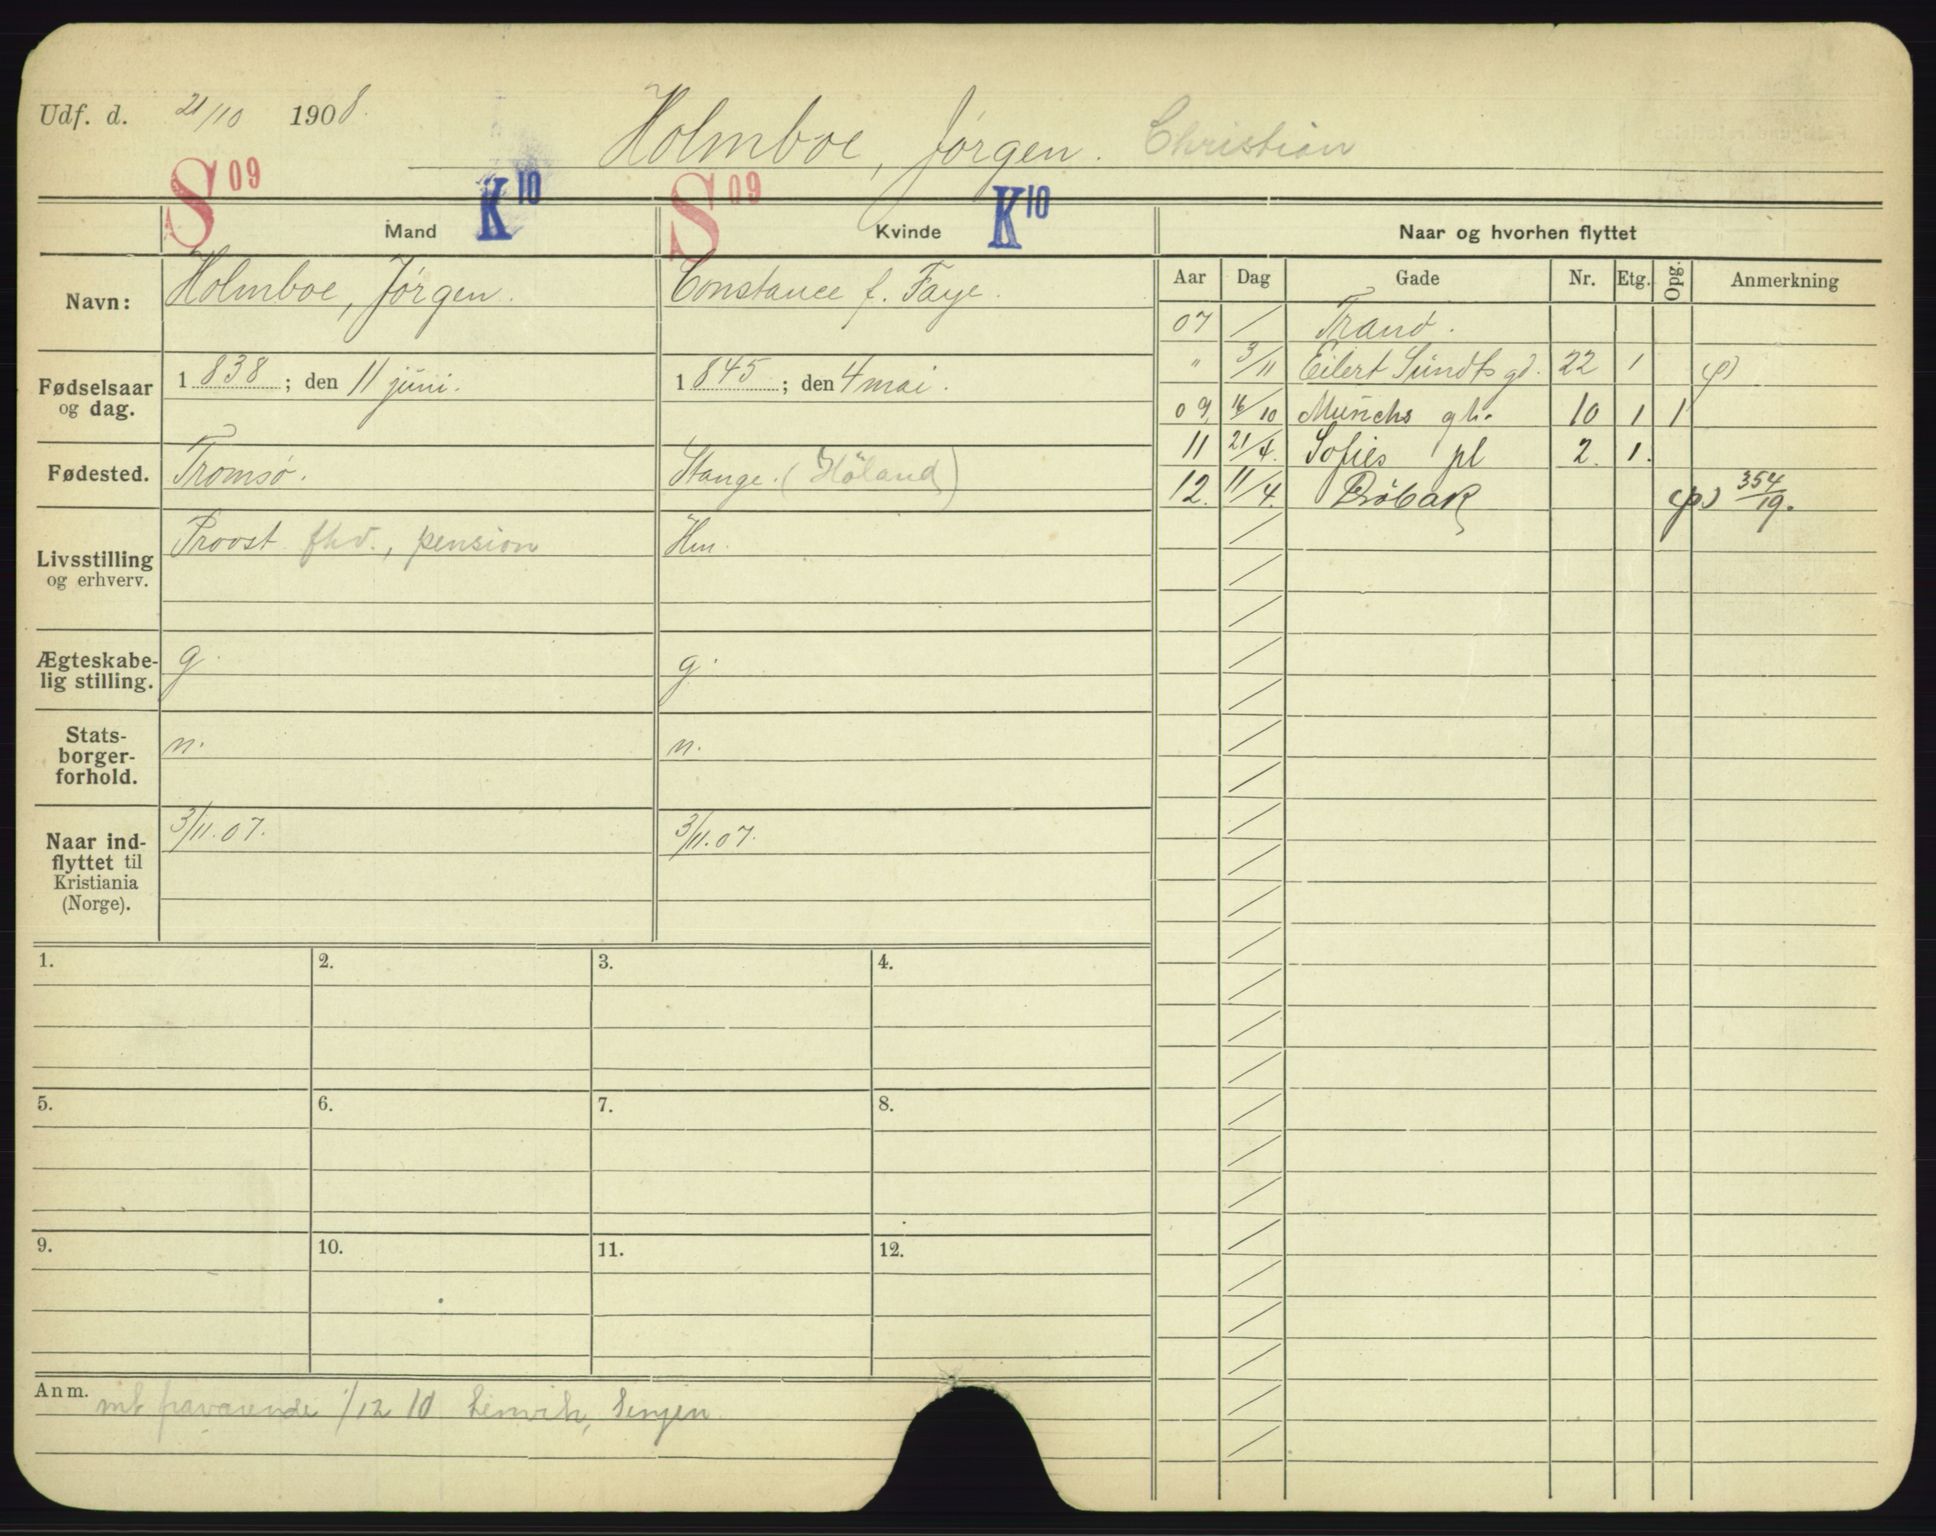 Udf. d. 21/10 1908.
Holmboe, Jørgen. Christian
S 09 K 10 S 09 K 10
Mand Kvinde Naar og hvorhen flyttet
Aar Dag Gade Nr. Etg. Opg. Anmerkning
Navn: Holmboe, Jørgen. Constance f. Faye.
Fødselsaar og dag. 1838; den 11 juni. 1845; den 4 mai.
Fødested. Tromsø. Stange. (Høland)
Livsstilling og erhverv. Provst fhv., pension Hm.
Ægteskabe-
lig stilling. g. g.
Stats-
borger-
forhold. n. n.
Naar ind-
flyttet til
Kristiania
(Norge). 3/11.07. 3/11.07.
07 / Tranø.
" 3/11 Eilert Sundts gd. 22 1 (p)
09, 16/10 Munchs gt. 10 1 1
11 21/4. Sofies pl 2. 1.
12. 11/4. Drøbak (p) 354/19.
1. 2. 3. 4.
5. 6. 7. 8.
9. 10. 11. 12.
Anm. mt fraværende 1/12 10 Lenvik, Senjen.